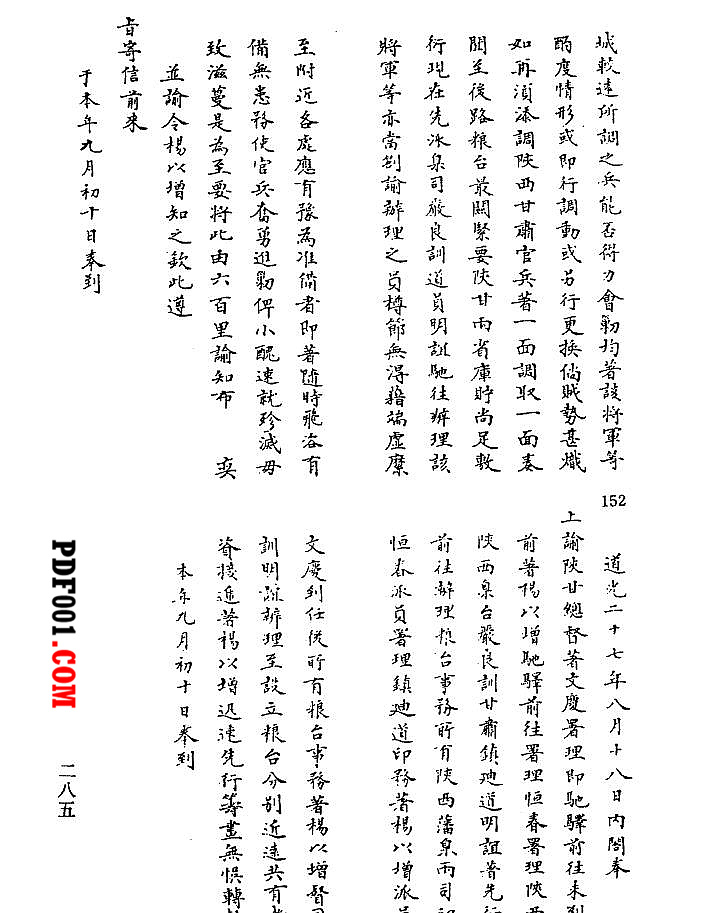 城較遠所調之兵能否得力會勦均著該將軍等
酌度情形或即行調動或另行更換倘賊勢甚熾
如再須添調陝西甘肅官兵著一面調取一面奏
聞至後路粮台最關緊要陝甘兩省庫貯尚足敷
衍現在先派臬司嚴良訓道員明誼馳往辦理該
將軍等亦當劄諭辦理之員樽節無得藉端虛糜
至附近各處應有豫為准備者即著隨時飛咨有
備無患務使官兵奮勇進勦俾小醜速就殄滅毋
致滋蔓是為至要將此由六百里諭知布 奕
並諭令楊以增知之欽此遵
旨寄信前來
于本年九月初十日奉到
152
道光二十七年八月十八日內閣奉
上諭陝甘總督著文慶署理即馳驛前往未到
前著楊以增馳驛前往署理恒春署理陝西
陝西臬台嚴良訓甘肅鎮迪道明誼著先行
前往辦理粮台事務所有陝西藩臬兩司
恒春派員署理鎮迪道印務著楊以增派員
文慶到任後所有粮台事務著楊以增督同
訓明誼辦理至設立粮台分別近遠共有
資接進著楊以增迅速先行籌畫無悞轉
本年九月初十日奉到
二八五
PDF001.COM